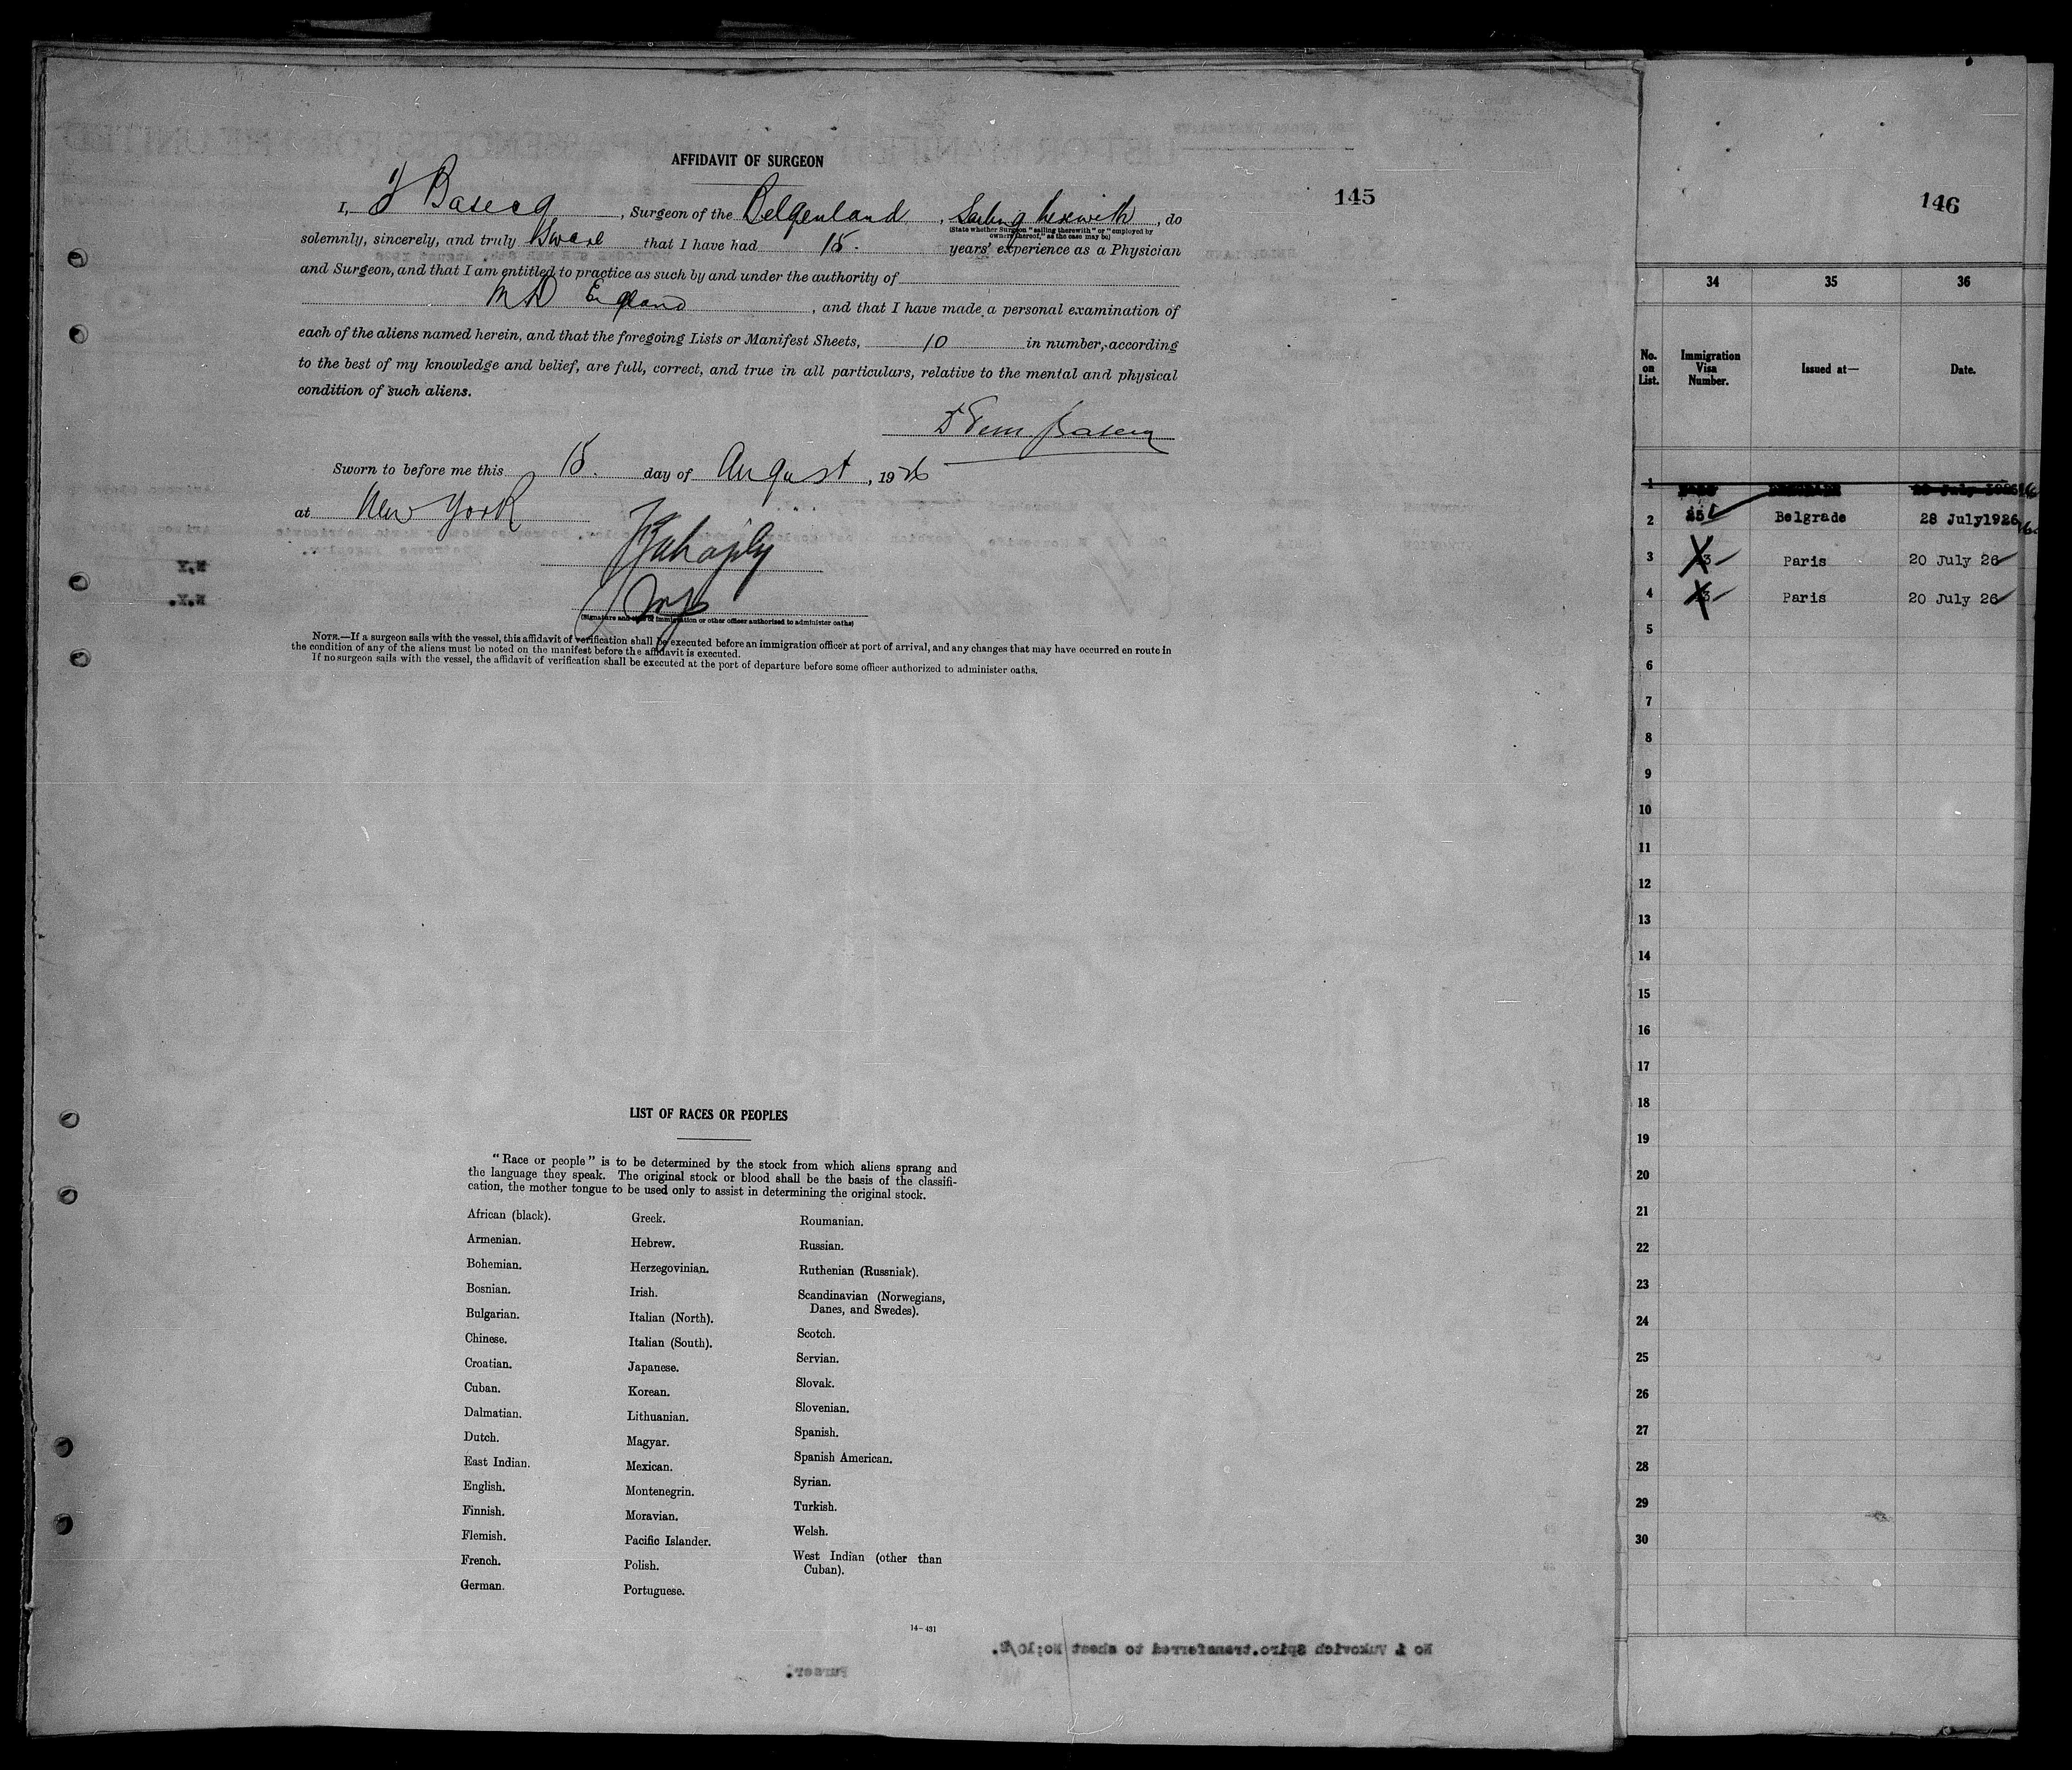 AFFIDAVIT OF SURGEON
145
I, , Surgeon of the Belgenland, Sailing herewith, do
(State whether Surgeon "sailing therewith" or "employed by
owners thereof," as the case may be)
solemnly, sincerely, and truly Swear that I have had 15. years' experience as a Physician
and Surgeon, and that I am entitled to practice as such by and under the authority of
MD England, and that I have made a personal examination of
each of the aliens named herein, and that the foregoing Lists or Manifest Sheets, 10 in number, according
to the best of my knowledge and belief, are full, correct, and true in all particulars, relative to the mental and physical
condition of such aliens.
Sworn to before me this 15. day of August, 1926
at New York
(Signature and title of immigration or other officer authorized to administer oaths)
NOTE.—If a surgeon sails with the vessel, this affidavit of verification shall be executed before an immigration officer at port of arrival, and any changes that may have occurred en route in
the condition of any of the aliens must be noted on the manifest before the affidavit is executed.
If no surgeon sails with the vessel, the affidavit of verification shall be executed at the port of departure before some officer authorized to administer oaths.
LIST OF RACES OR PEOPLES
"Race or people" is to be determined by the stock from which aliens sprang and
the language they speak. The original stock or blood shall be the basis of the classifi-
cation, the mother tongue to be used only to assist in determining the original stock.
African (black).
Armenian.
Bohemian.
Bosnian.
Bulgarian.
Chinese.
Croatian.
Cuban.
Dalmatian.
Dutch.
East Indian.
English.
Finnish.
Flemish.
French.
German.
Greek.
Hebrew.
Herzegovinian.
Irish.
Italian (North).
Italian (South).
Japanese.
Korean.
Lithuanian.
Magyar.
Mexican.
Montenegrin.
Moravian.
Pacific Islander.
Polish.
Portuguese.
Roumanian.
Russian.
Ruthenian (Russniak).
Scandinavian (Norwegians,
Danes, and Swedes).
Scotch.
Servian.
Slovak.
Slovenian.
Spanish.
Spanish American.
Syrian.
Turkish.
Welsh.
West Indian (other than
Cuban).
14-431
No 1 Vukovich Spiro.transferred to sheet No:10/E.
Purser.
146
34 35 36
No. on List. Immigration Visa Number. Issued at— Date.
1
2 251 Belgrade 28 July1926
3 Paris 20 July 26
4 Paris 20 July 26
5
6
7
8
9
10
11
12
13
14
15
16
17
18
19
20
21
22
23
24
25
26
27
28
29
30